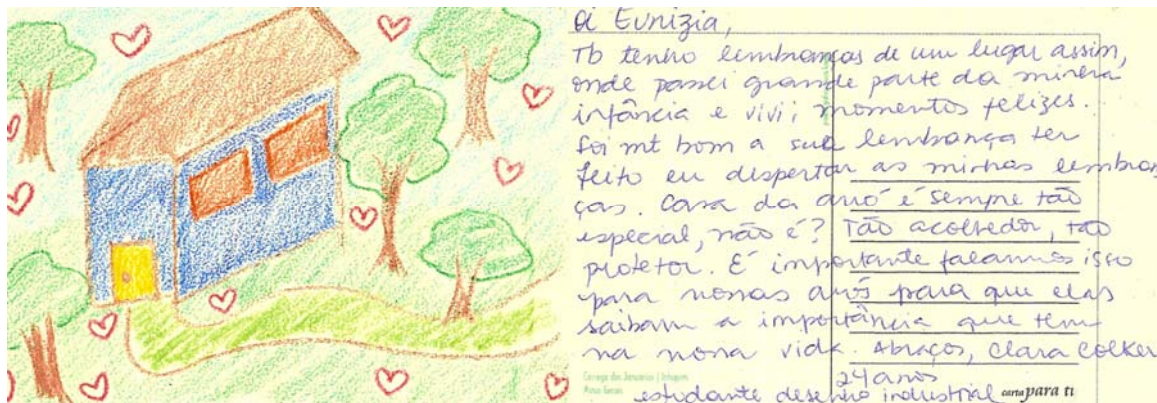 Oi Eunizia,
Tb tenho lembranças de um lugar assim,
onde passei grande parte da minha
infância e vivi, momentos felizes.
Foi mt bom a sua lembrança ter
feito eu despertar as minhas lembran
ças. Casa da avó é sempre tão
especial, não é? Tão acolhedor, tão
protetor. É importante falarmos isso
para nossas avós para que elas
saibam a importância que tem
na nossa vida. Abraços, Clara Colker
24 anos
estudante desenho industrial
Córrego dos Januários | Inhapim
Minas Gerais
carta para ti